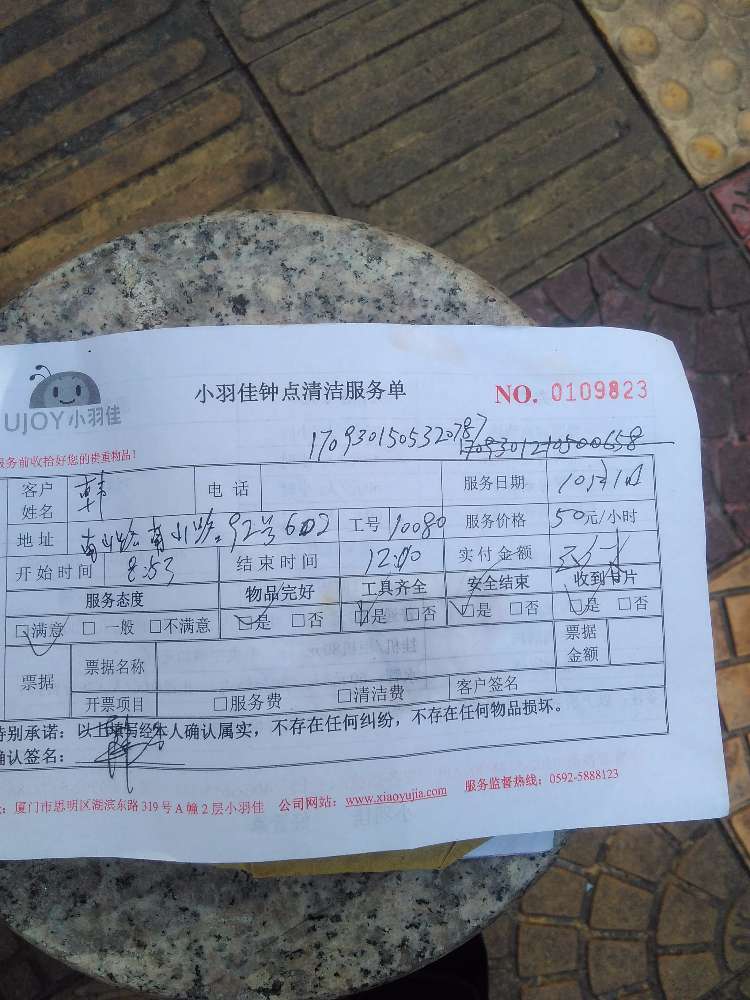 UJOY小羽佳
小羽佳钟点清洁服务单
NO. 0109823
1709301505320787
1709301210500658
服务前收拾好您的贵重物品!
客户姓名 韩 电话 服务日期 10月1日
地址 92号602 工号 10080 服务价格 50元/小时
开始时间 8:53 结束时间 12:00 实付金额
服务态度 物品完好 工具齐全 安全结束 收到卡片
□满意 □一般 □不满意 □是 □否 □是 □否 □是 □否 □是 □否
票据 票据名称 票据金额
开票项目 □服务费 □清洁费 客户签名
特别承诺:以上填写经本人确认属实,不存在任何纠纷,不存在任何物品损坏。
确认签名:韩
厦门市思明区湖滨东路319号A幢2层小羽佳 公司网站:www.xiaoyujia.com 服务监督热线:0592-5888123